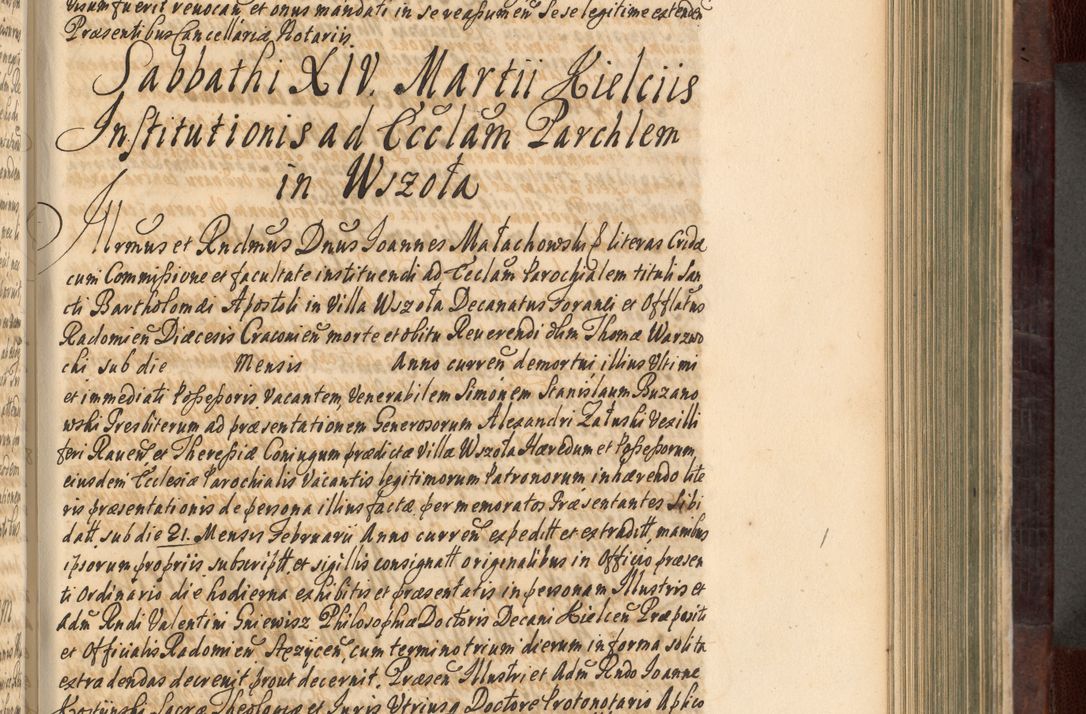 visum fuerit revocan̄ et onus mandati in se reassumen̄ sese legitime extenden̄
Præsentibus Cancellariæ Notariis
Sabbathi XIV. Martii Kielciis
Institutionis ad Ecclam̄ Parchlem
in Wszoła
Illrmus et Rndmus Dnus Joannes Małachowski p̱ literas Crdæ
cum Commissione et facultate instituendi ad Ecclam̄ Parochialem tituli San
cti Bartholomæi Apostoli in Villa Wszoła Decanatus Foranei et Offlatus
Radomien̄ Diæcesis Cracovien̄ morte et obitu Reverendi olim Thomæ Warzwo
chi sub die Mensis Anno curren̄ demortui illius Ultimi
et immediati Possessoris vacantem, Venerabilem Simonem Stanislaum Buzano
wski Presbiterum ad præsentationem Generosorum Alexandri Załuski Vexilli
feri Raven̄ et Theressiæ Coniugum prædictæ Villæ Wszoła Hæredum et Possessorum,
eiusdem Ecclesiæ Parochialis Vacantis legitimorum Patronorum inhærendo lite
ris præsentationis de persona illius factæ per memoratos Præsentantes Sibi
datt. sub die 21. Mensis Februarii Anno curren̄ expeditt et extraditt, manibus
ipsorum propriis subscriptt, et sigillis consignatt originalibus in Officio præsen
ti Ordinario die hodierna exhibitis et præsentatis in personam Illustris et
Adm̄ Rndi Valentini Gniewisz Philosophiæ Doctoris Decani Kielcen̄ Præpositi
et Officialis Radomien̄ Stęzycen̄, cum termino trium dierum in forma solita
extradendas decrevit prout decernit. Præsen̄ Illustri et Adm̄ Rndo Joanne
Sacræ Theologiæ et Juris Utriusq Doctore Protonotario Aplico